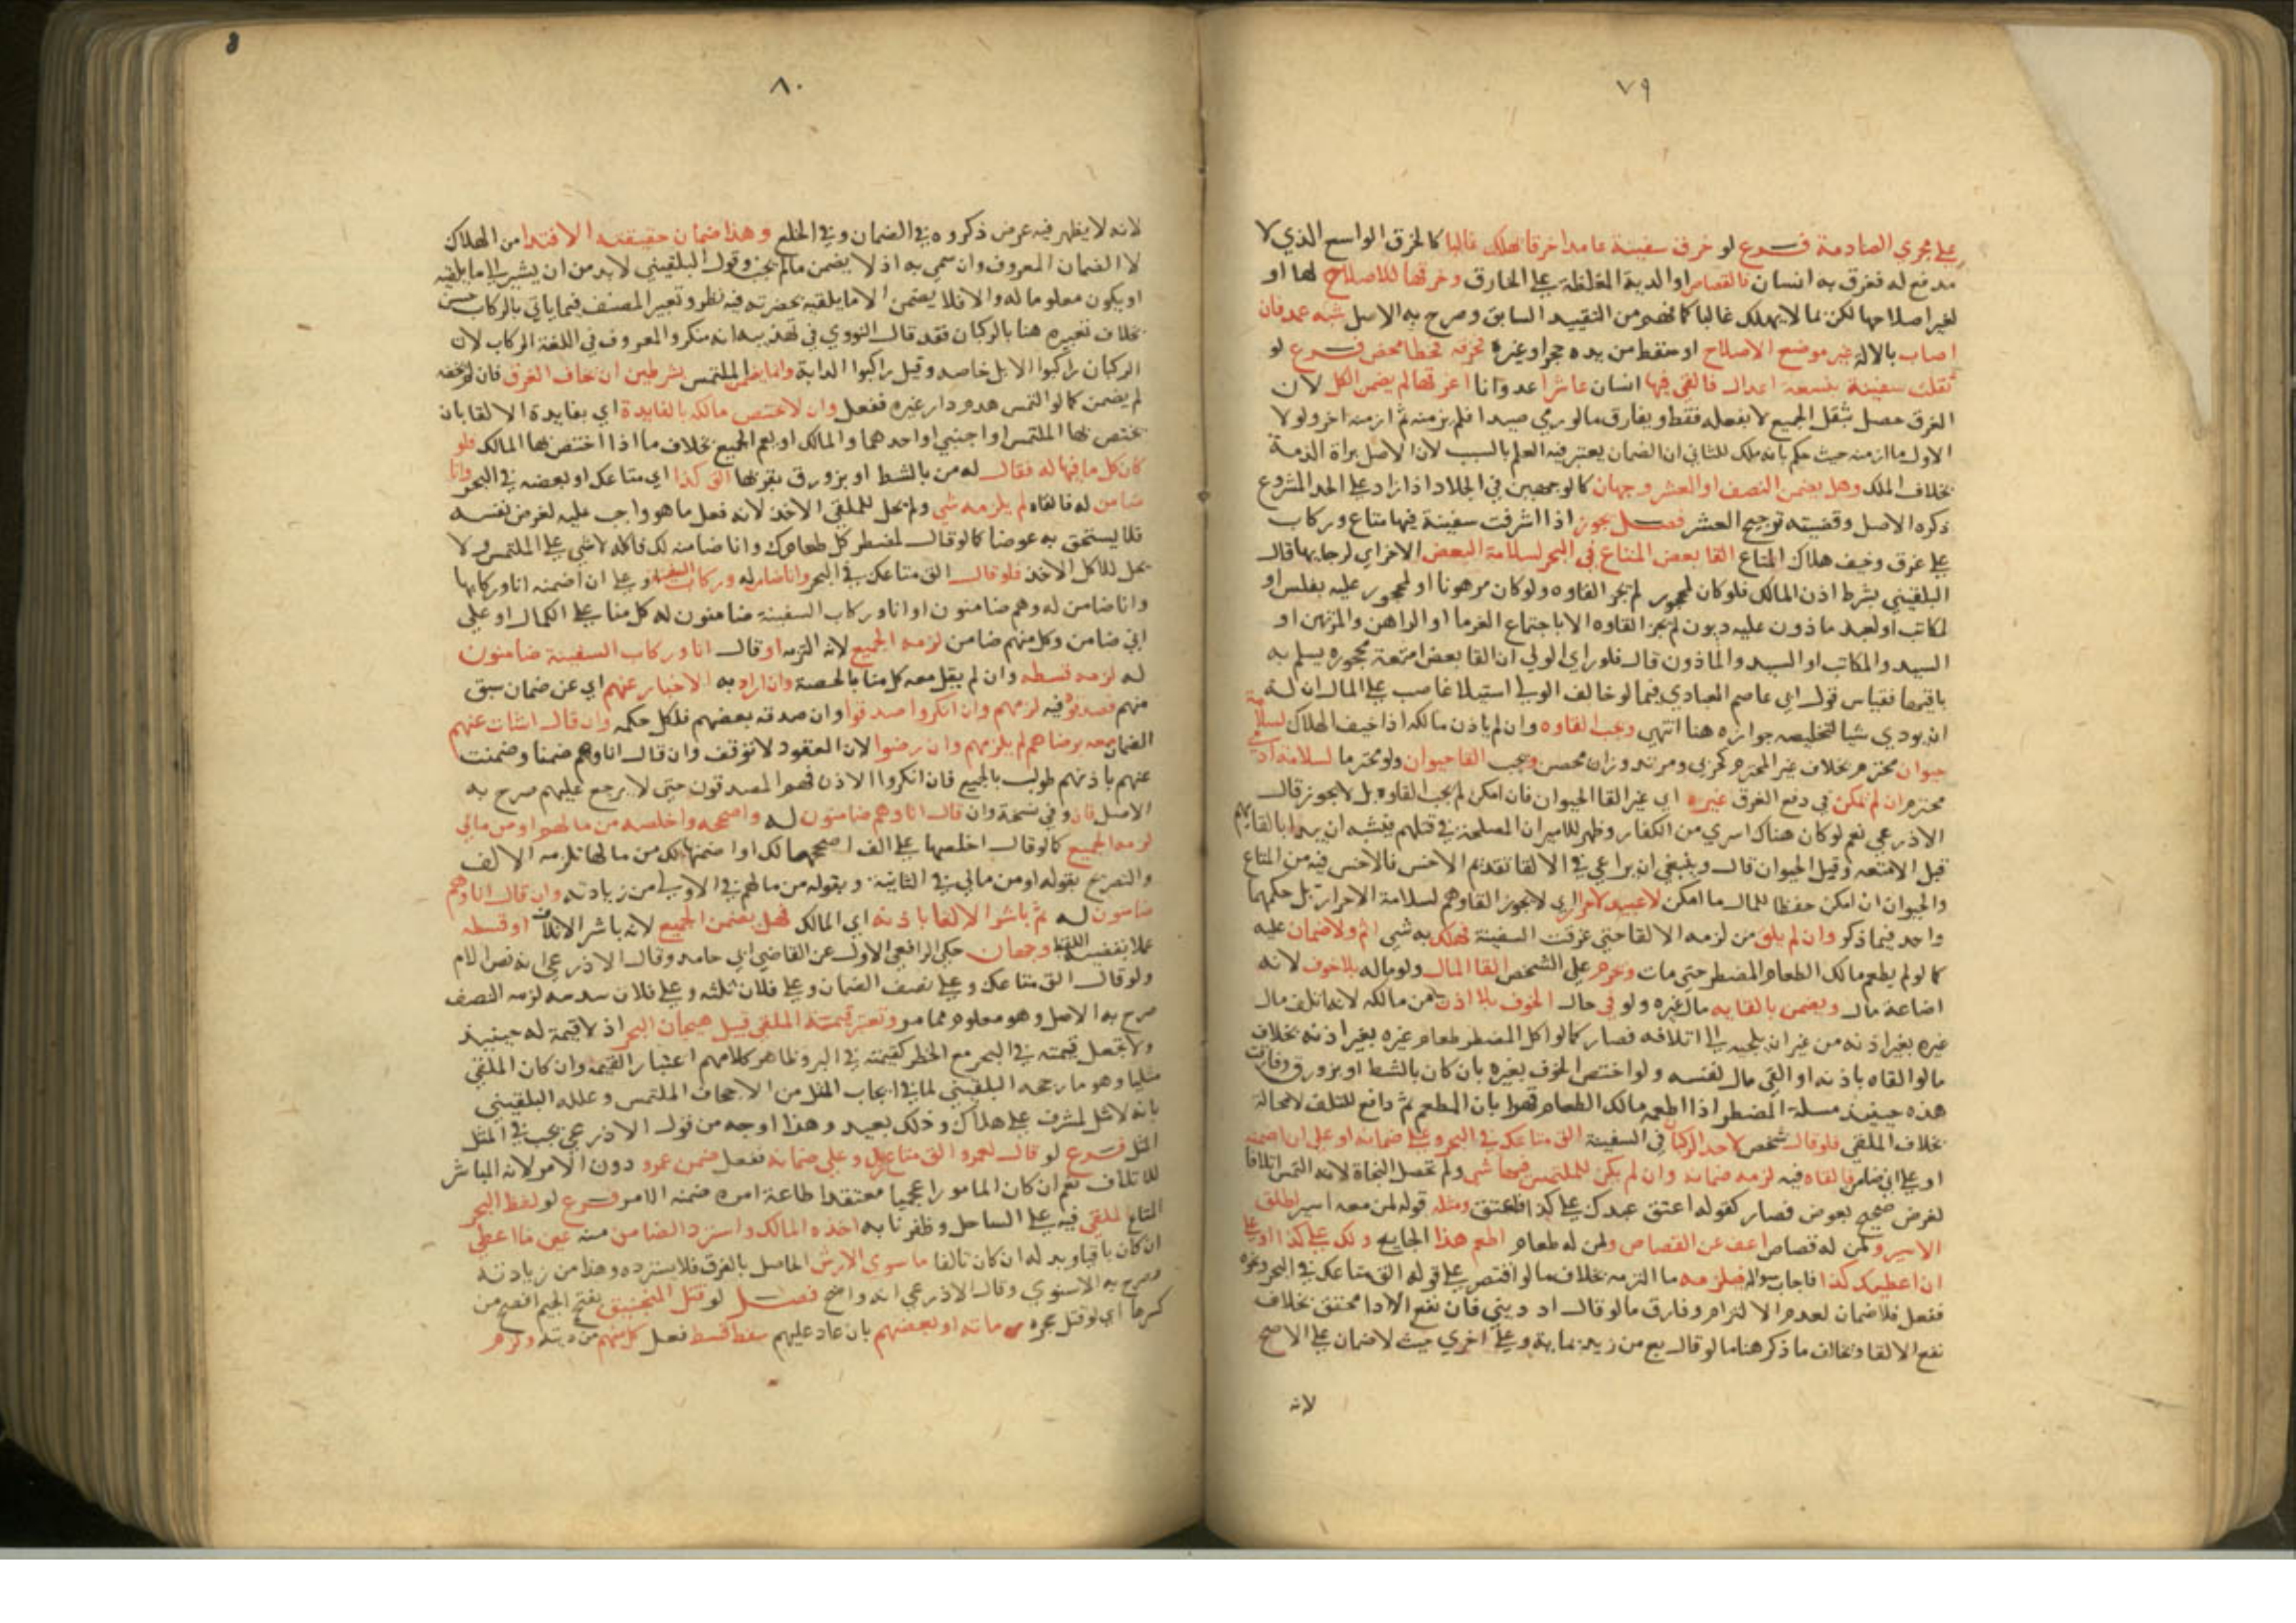 ٧٩
علي مجري الصادمة فرع لو خرق سفينة عامدا خرقا يهلك غالبا كالخرق الواسع الذي لا
مدفع له فغرق به انسان فالقصاص او الدية المغلظة علي الخارق وخرقها للاصلاح لها او
لغير اصلاحها لكن بما لا يهلك غالبا كما فهم من التقييد السابق وصرح به الاصل شبه عمد فان
اصاب بالالة غير موضع الاصلاح او سقط من يده حجر او غيره فخرقه فخطا محض فرع لو
ثقلت سفينة بتسعة اعدال فالقي فيها انسان عاشرا عدوانا اغرقها لم يضمن الكل لان
الغرق حصل بثقل الجميع لا بفعله فقط ويفارق ما لو رمي صيدا فلم يزمنه ثم ازمنه اخر ولولا
الاول ما ازمنه حيث حكم بانه ملك للثاني ان الضمان يعتبر فيه العلم بالسبب لان الاصل براة الذمة
بخلاف الملك وهل يضمن النصف او العشر وجهان كالوجهين في الجلاد اذا زاد علي الحد المشروع
ذكره الاصل وقضيته ترجيح العشر فصل يجوز اذا اشرفت سفينة فيها متاع وركاب
علي غرق وخيف هلاك المتاع القا بعض المتاع في البحر لسلامة البعض الاخر اي لرجايها قال
البلقيني بشرط اذن المالك فلو كان لمحجور لم يجز القاوه ولو كان مرهونا او لمحجور عليه بفلس او
لمكاتب او لعبد ماذون عليه ديون لم يجز القاوه الا باجتماع الغرما او الراهن والمرتهن او
السيد والمكاتب او السيد والماذون قال فلو راي الولي ان القا بعض امتعة محجوره يسلم به
باقيها فقياس قول ابي عاصم العبادي فيما لو خالف الولي استيلا غاصب علي المال ان له
ان يودي شيا لتخليصه جوازه هنا انتهي ويجب القاوه وان لم ياذن مالكه اذا خيف الهلاك لسلامة
حيوان محترم بخلاف غير المحترم كحربي ومرتد وزان محصن ويجب القا حيوان ولو محترما لسلامة ادمي
محترم ان لم يمكن في دفع الغرق غيره اي غير القا الحيوان فان امكن لم يجب القاوه بل لا يجوز قال
الاذرعي نعم لو كان هناك اسري من الكفار وظهر للامير ان المصلحة في قتلهم فيشبه ان يبدا بالقايهم
قبل الامتعة وقبل الحيوان قال وينبغي ان يراعي في الالقا تقديم الاخس فالاخس فيه من المتاع
والحيوان ان امكن حفظا للمال ما امكن لا عبيد لاحرار اي لا يجوز القاوهم لسلامة الاحرار بل حكمهما
واحد فيما ذكر وان لم يلق من لزمه الالقا حتي غرقت السفينة فهلك به شي اثم ولا ضمان عليه
كما لو لم يطعم مالك الطعام المضطر حتي مات وحرم علي الشخص القا المال ولو ماله بلا خوف لانه
اضاعة مال ويضمن بالقايه مال غيره ولو في حال الخوف بلا اذن من مالكه لانه اتلف مال
غيره بغير اذنه من غير ان يلجيه الي اتلافه فصار كما لو اكل المضطر طعام غيره بغير اذنه بخلاف
ما لو القاه باذنه او القي مال نفسه ولو اختص الخوف بغيره بان كان بالشط او بزورق وفارقت
هذه حينيذ مسلة المضطر اذا اطعمه مالك الطعام قهرا بان المطعم ثم دافع للتلف لا محالة
بخلاف الملقي فلو قال شخص لاحد الركاب في السفينة الق متاعك في البحر وعلي ضمانه او علي ان اضمنه
او علي اني ضامن فالقاه فيه لزمه ضمانه وان لم يكن للملتمس فيها شي ولم تحصل النجاة لانه التمس اتلافا
لغرض صحيح بعوض فصار كقوله اعتق عبدك علي كذا فاعتق ومثله قوله لمن معه اسير اطلق
الاسير ولمن له قصاص اعف عن القصاص ولمن له طعام اطعم هذا الجايع ولك علي كذا او علي
ان اعطيك كذا فاجاب سواله فيلزمه ما التزمه بخلاف ما لو اقتصر علي قوله الق متاعك في البحر ونحوه
ففعل فلا ضمان لعدم الالتزام وفارق ما لو قال اد ديني فان نفع الادا محقق بخلاف
نفع الالقا وخالف ما ذكر هنا ما لو قال بع من زيد بماية وعلي اخري حيث لا ضمان علي الاصح
لانه
٨٠
لانه لا يظهر فيه غرض ذكروه في الضمان وفي الخلع وهذا ضمان حقيقته الافتدا من الهلاك
لا الضمان المعروف وان سمي به اذ لا يضمن ما لم يجب وقول البلقيني لا بد من ان يشير الي ما يلقيه
او يكون معلوما له والا فلا يضمن الا ما يلقيه بحضرته فيه نظر وتعبير المصنف فيما ياتي بالركاب حسن
بخلاف تعبيره هنا بالركبان فقد قال النووي في تهذيبه انه منكر والمعروف في اللغة الركاب لان
الركبان راكبوا الابل خاصه وقيل راكبوا الدابة وانما يضمن الملتمس بشرطين ان خاف الغرق فان لم يخفه
لم يضمن كما لو التمس هدم دار غيره ففعل وان لا يختص مالكه بالفايدة اي بفايدة الالقا بان
يختص بها الملتمس او اجنبي او احدهما والمالك او يعم الجميع بخلاف ما اذا اختص بها المالك فلو
كان كل ما فيها له فقال له من بالشط او بزورق بقربها الق كذا اي متاعك او بعضه في البحر وانا
ضامن له فالقاه لم يلزمه شي ولم يحل للملقي الاخذ لانه فعل ما هو واجب عليه لغرض نفسه
فلا يستحق به عوضا كما لو قال لمضطر كل طعامك وانا ضامنه لك فاكله لا شي علي الملتمس ولا
يحل للاكل الاخذ فلو قال الق متاعك في البحر وانا ضامن له وركاب السفينة او علي ان اضمنه انا وركابها
وانا ضامن له وهم ضامنون او انا وركاب السفينة ضامنون له كل منا علي الكمال او علي
اني ضامن وكل منهم ضامن لزمه الجميع لانه التزمه او قال انا وركاب السفينة ضامنون
له لزمه قسطه وان لم يقل معه كل منا بالحصة وان اراد به الاخبار عنهم اي عن ضمان سبق
منهم فصدقوه فيه لزمهم وان انكروا صدقوا وان صدقه بعضهم فلكل حكمه وان قال انشات عنهم
الضمان معه برضاهم لم يلزمهم وان رضوا لان العقود لا توقف وان قال انا وهم ضمنا وضمنت
عنهم باذنهم طولب بالجميع فان انكروا الاذن فهم المصدقون حتي لا يرجع عليهم صرح به
الاصل فان وفي نسخة وان قال انا وهم ضامنون له واصححه واخلصه من مالهم او من مالي
لزمه الجميع كما لو قال اخلعها علي الف اصححها لك او اضمنها لك من مالها تلزمه الالف
والتصريح بقوله او من مالي في الثانية وبقوله من مالهم في الاولي من زيادته وان قال انا وهم
ضامنون له ثم باشر الالقا باذنه اي المالك فهل يضمن الجميع لانه باشر الاتلاف او قسطه
عملا بقضية اللفظ وجهان حكي الرافعي الاول عن القاضي ابي حامد وقال الاذرعي انه نص الام
ولو قال الق متاعك وعلي نصف الضمان وعلي فلان ثلثه وعلي فلان سدسه لزمه النصف
صرح به الاصل وهو معلوم مما مر وتعتبر قيمة الملقي قبل هيجان البحر اذ لا قيمة له حينيذ
ولا تجعل قيمته في البحر مع الخطر كقيمته في البر وظاهر كلامهم اعتبار القيمة وان كان الملقي
مثليا وهو ما رجحه البلقيني لما في ايجاب المثل من الاجحاف بالملتمس وعلله البلقيني
بانه لا مثل لمشرف علي هلاك وذلك بعيد وهذا اوجه من قول الاذرعي يجب في المثلي
المثل فرع لو قال لعمرو الق متاع زيد وعلي ضمانه ففعل ضمن عمرو دون الامر لانه المباشر
للاتلاف نعم ان كان المامور اعجميا معتقدا طاعة امره ضمنه الامر فرع لو لفظ البحر
المتاع الملقي فيه علي الساحل وظفرنا به اخذه المالك واسترد الضامن منه عين ما اعطي
ان كان باقيا وبدله ان كان تالفا ما سوي الارش الحاصل بالغرق فلا يسترده وهذا من زيادته
وصرح به الاسنوي وقال الاذرعي انه واضح فصل لو قتل المنجنيق بفتح الجيم افصح من
كسرها اي لو قتل حجره رماته او بعضهم بان عاد عليهم سقط قسط فعل كل منهم من ديته ولزم